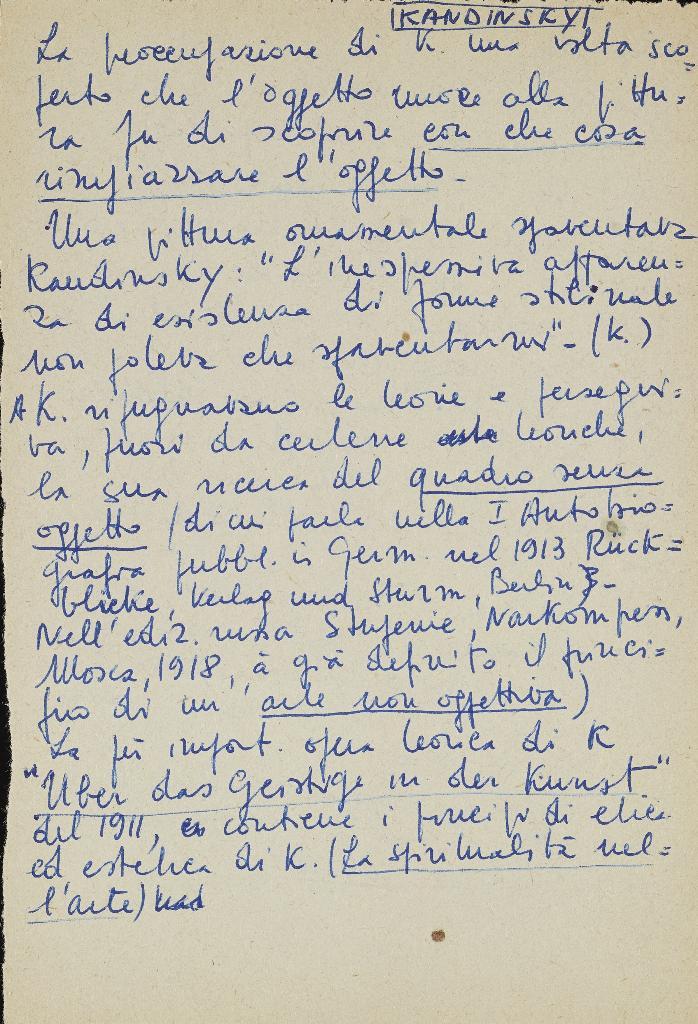 KANDINSKY
La preoccupazione di K. una volta sco=
perto che l'oggetto nuoce alla pittu=
ra fu di scoprire con che cosa
rimpiazzare l'oggetto.
Una pittura ornamentale spaventava
Kandinsky: "L'inespressiva apparen=
za di esistenza di forme stilizzate
non poteva che spaventarmi"- (K.)
A K. ripugnavano le teorie e persegui=
va, fuori da cerchie teoriche,
la sua ricerca del quadro senza
oggetto (di cui parla nella I Autobio=
grafia pubbl. in Germ. nel 1913 Rück=
blicke, Verlag und Sturm, Berlin.
Nell'ediz. russa Stupenie, Narkompros,
Mosca, 1918, à già definito il princi=
pio di un'arte non oggettiva)
La più import. opera teorica di K
"Uber das Geistige in der Kunst"
del 1911, contiene i principi di etica
ed estetica di K. (La spiritualità nel=
l'arte)